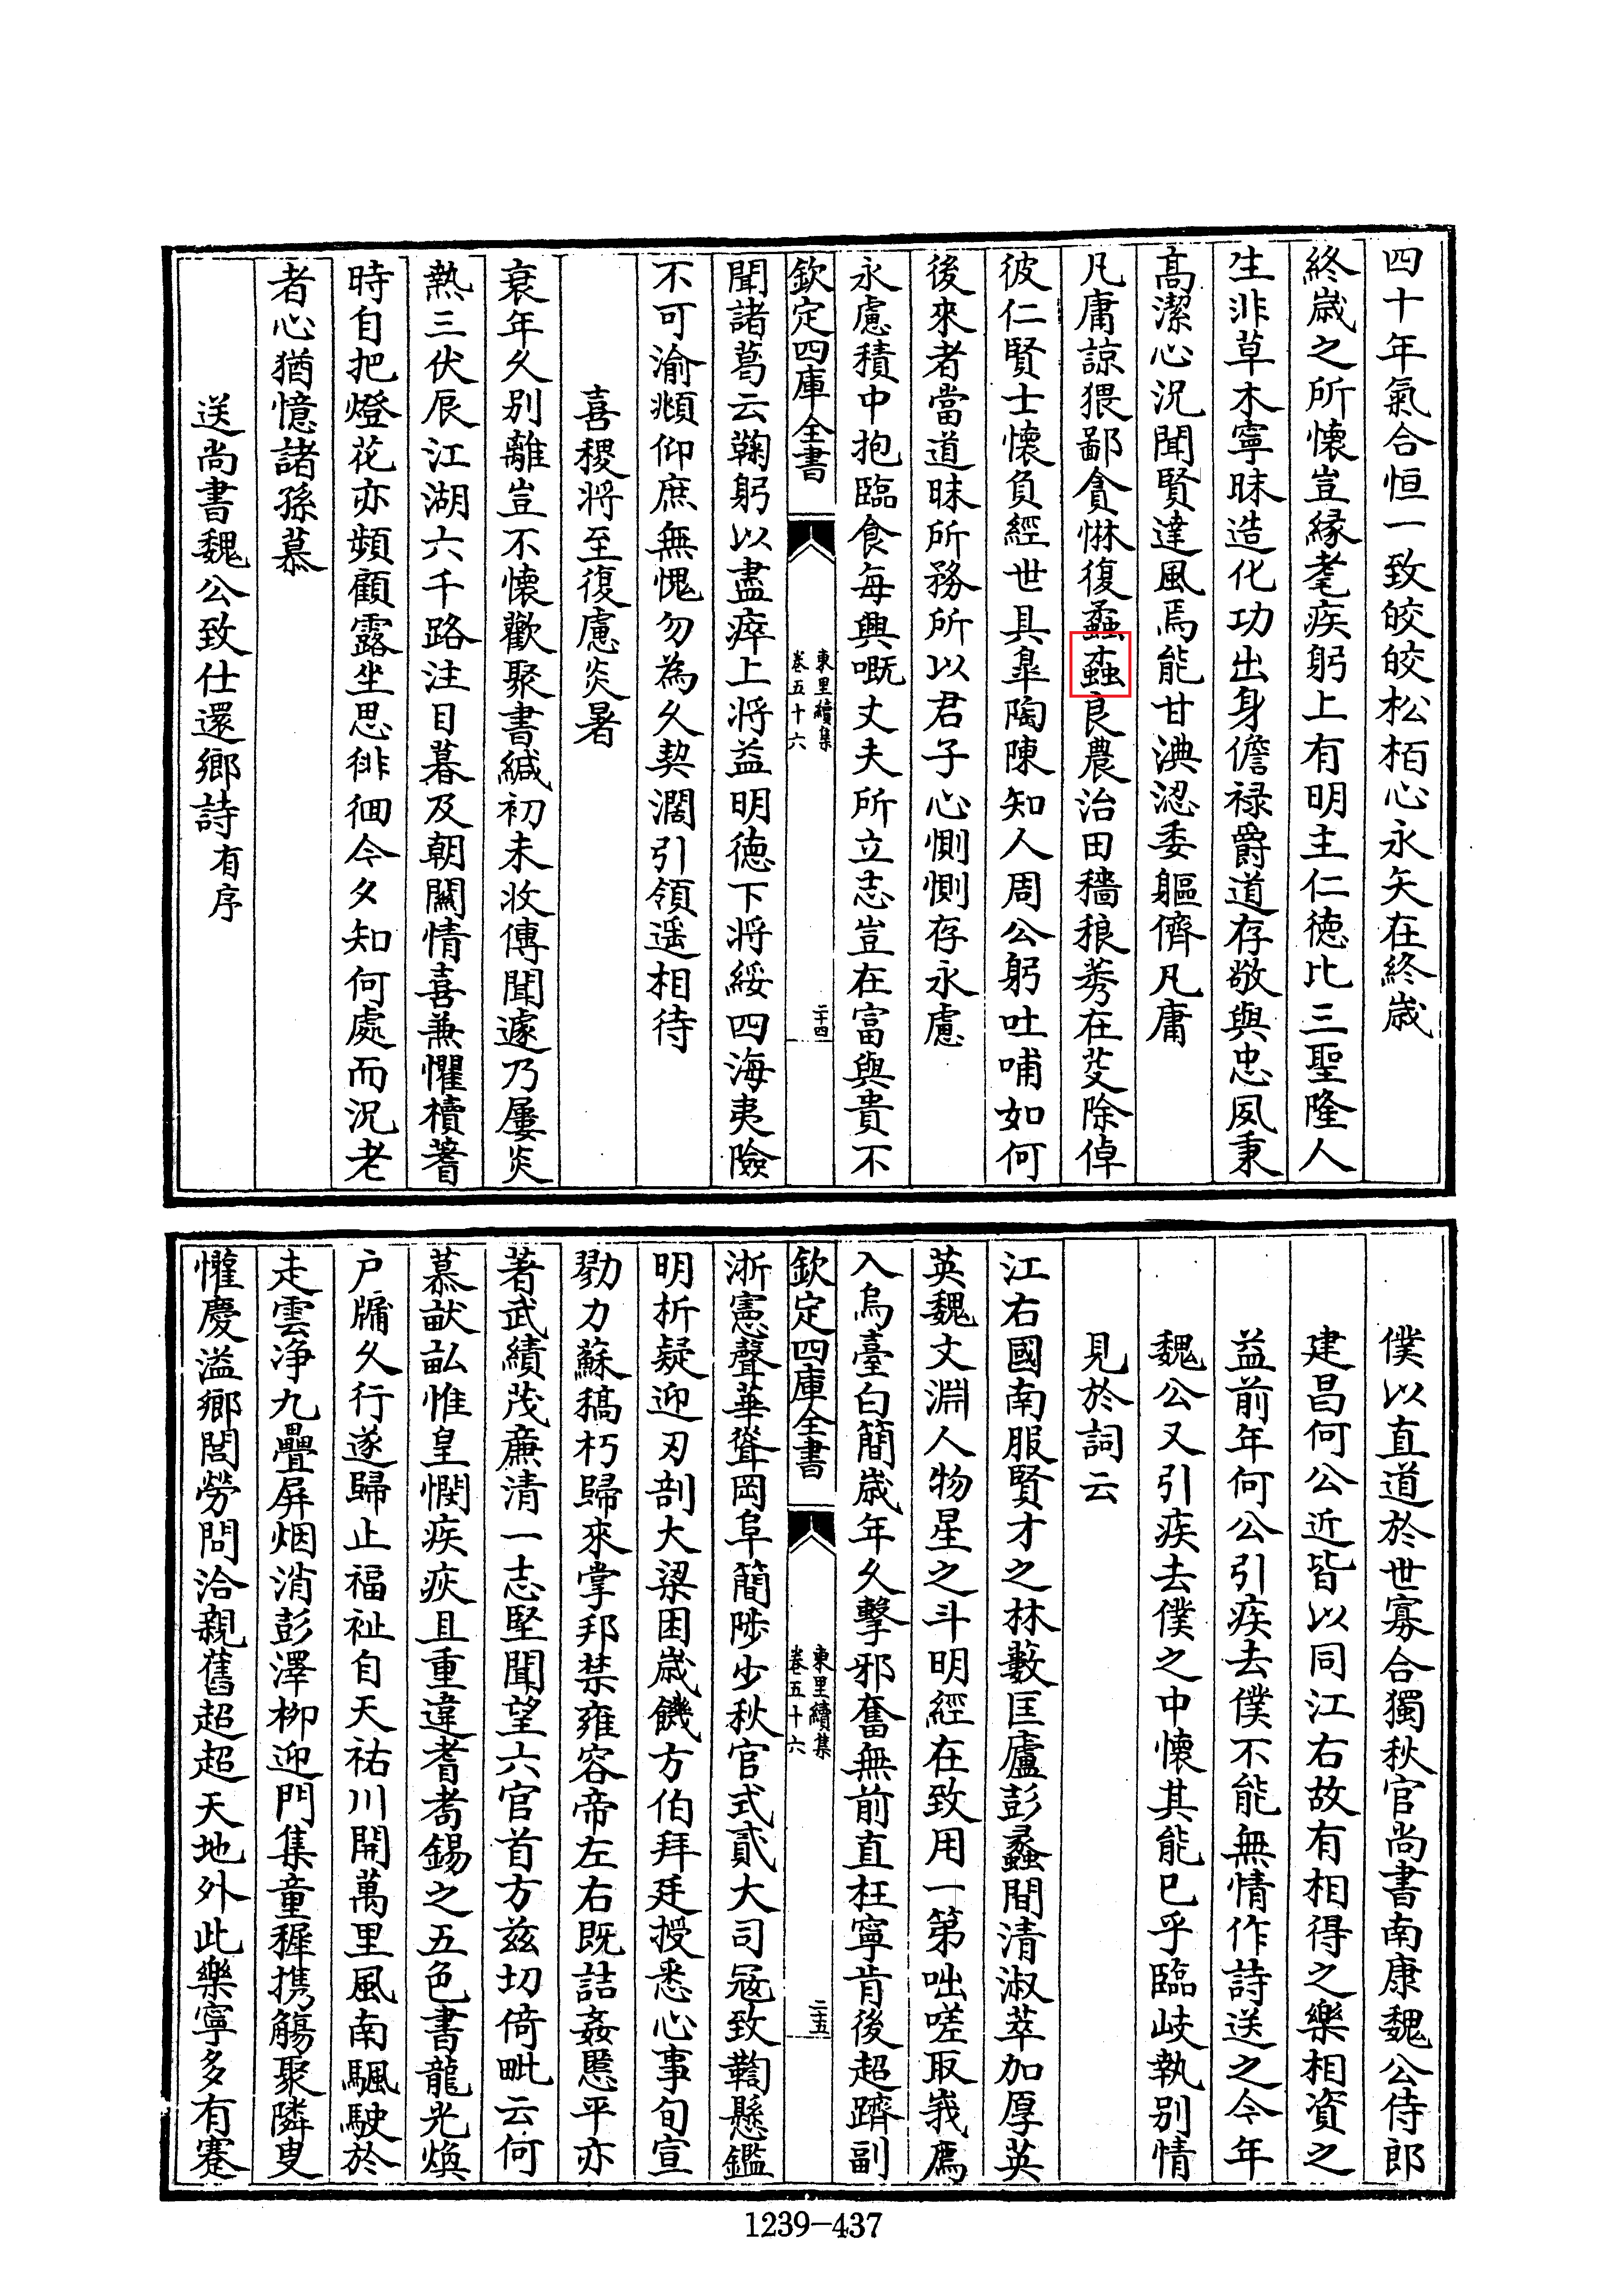 四十年氣合恒一致皎皎松栢心永矢在終歲
終歲之所懷豈縁耄疾躬上有明主仁徳比三聖隆人
生非草木寧昧造化功出身儋禄爵道存敬與忠夙秉
髙潔心況聞賢達風焉能甘淟涊委軀儕凡庸
凡庸諒猥鄙貪惏復蟊螙良農治田穡稂莠在芟除倬
彼仁賢士懷負經世具皐陶陳知人周公躬吐哺如何
後來者當道昧所務所以君子心惻惻存永慮
永慮積中抱臨食每興嘅丈夫所立志豈在富與貴不
欽定四庫全書
東里續集
卷五十六
二十四
聞諸葛云鞠躬以盡瘁上將益明徳下將綏四海夷險
不可渝頫仰庶無愧勿為久契濶引領遥相待
喜稷将至復慮炎暑
衰年久别離豈不懷歡聚書緘初未收傳聞遽乃屢炎
熱三伏辰江湖六千路注目暮及朝闗情喜兼懼櫝蓍
時自把燈花亦頻顧露坐思徘徊今夕知何處而況老
者心猶憶諸孫慕
送尚書魏公致仕還鄉詩有序
僕以直道於世寡合獨秋官尚書南康魏公侍郎
建昌何公近皆以同江右故有相得之樂相資之
益前年何公引疾去僕不能無情作詩送之今年
魏公又引疾去僕之中懷其能已乎臨岐執别情
見於詞云
江右國南服賢才之林藪匡廬彭蠡間清淑萃加厚英
英魏丈淵人物星之斗明經在致用一第咄嗟取峩廌
入烏臺白簡歲年久擊邪奮無前直枉寧肯後超躋副
欽定四庫全書
東里續集
卷五十六
二十五
浙憲聲華聳岡阜簡陟少秋官式貳大司冦致鞫懸鑑
明析疑迎刃剖大梁困歲饑方伯拜廷授悉心事旬宣
勠力蘇稿朽歸來掌邦禁雍容帝左右既詰姦慝平亦
著武績茂亷清一志堅聞望六官首方兹切倚毗云何
慕畎畝惟皇憫疾疢且重違耆耉錫之五色書龍光煥
户牖久行遂歸止福祉自天祐川開萬里風南颿駛於
走雲浄九疊屏烟消彭澤栁迎門集童穉携觴聚隣叟
懽慶溢鄉閭勞問洽親舊超超天地外此樂寧多有蹇
1239-437